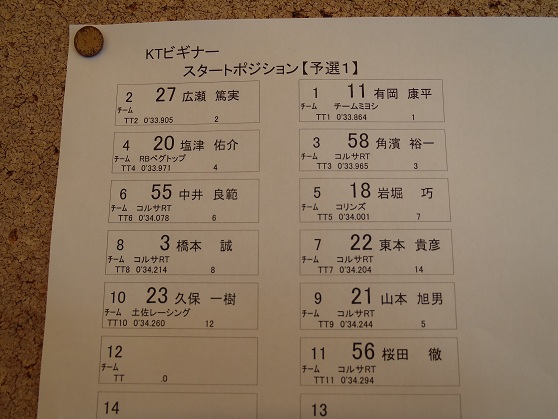 KTビギナー
スタートポジション【予選1】
2 27 広瀬 篤実
チーム
TT2 0'33.905 2
1 11 有岡 康平
チーム チームミヨシ
TT1 0'33.864 1
4 20 塩津 佑介
チーム RBペグトップ
TT4 0'33.971 4
3 58 角濱 裕一
チーム コルサRT
TT3 0'33.965 3
6 55 中井 良範
チーム コルサRT
TT6 0'34.078 6
5 18 岩堀 巧
チーム コリンズ
TT5 0'34.001 7
8 3 橋本 誠
チーム コルサRT
TT8 0'34.214 8
7 22 東本 貴彦
チーム コルサRT
TT7 0'34.204 14
10 23 久保 一樹
チーム 土佐レーシング
TT10 0'34.260 12
9 21 山本 旭男
チーム コルサRT
TT9 0'34.244 5
12
チーム
TT .0
11 56 桜田 徹
チーム コルサRT
TT11 0'34.294
14
13